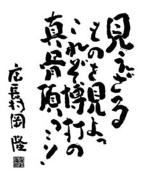 見えざる
ものを見よっ
これぞ博打の
真骨頂ッ…!
庄長村岡隆